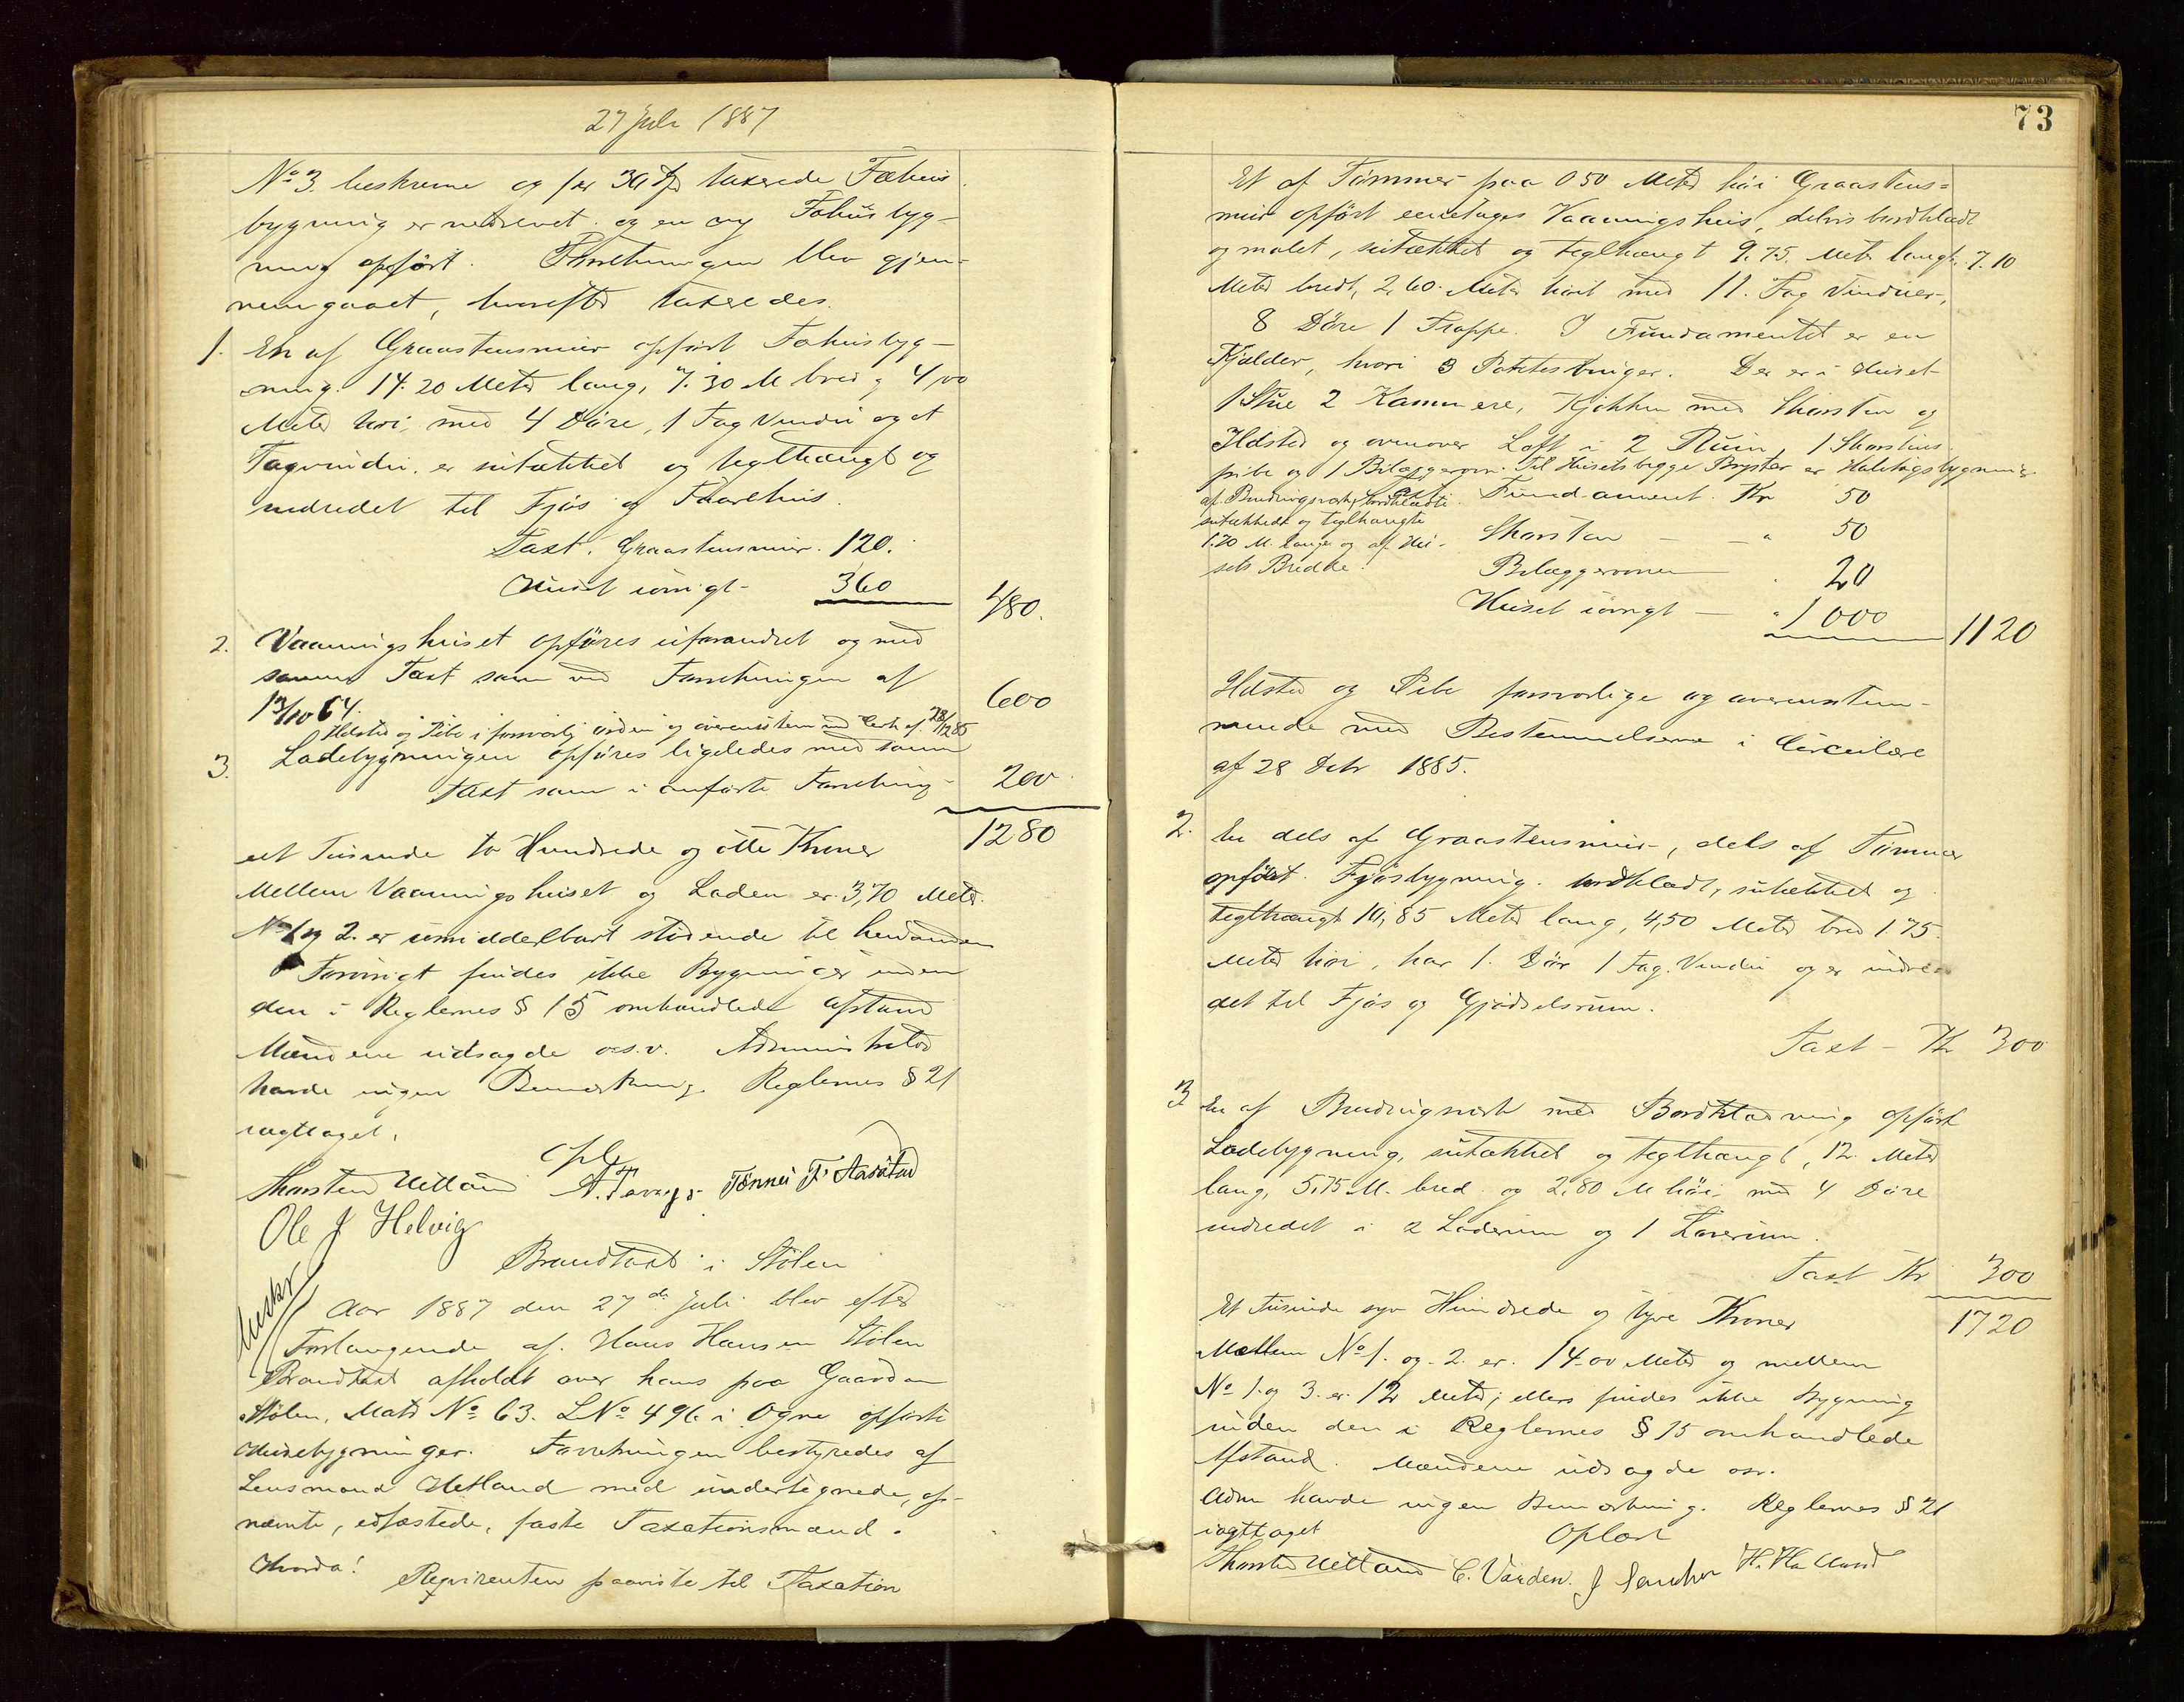 27 Juli 1887
No 3. beskrevne og for taxerede Fæhus
bygning er nedrevet og en ny Fæhusbyg-
ning opført. Forretningen blev gjen-
nemgaaet, hvorefter taxeredes.
1. En af Graastensmur opført Fæhusbyg-
ning. 14.20 Meter lang, 7.30 M bred og 4,00
Meter høi, med 4 Døre, 1 Fag Vindu og et
Tagvindu, er sutækket og teglhængt og
indredet til Fjøs og Faarehus.
Taxt. Graastensmur. 120.
Huset iøvrigt - 360
480.
2. Vaaningshuset opføres uforandret og med
samme Taxt som ved Forretningen af
13/10 64. 600
Ildsted og Pibe i forsvarlig orden og overensstem med Cirk. af 28/12 85
3. Ladebygningen opføres ligeledes med samme
Taxt som i anførte Forretning - 200
1280
eet Tusinde to Hundrede og otti Kroner
Mellem Vaaningshuset og Laden er 3,70 Meter.
No 1 og 2. er umiddelbart stødende til hinanden
Forøvrigt findes ikke Bygninger inden
den i Reglernes § 15 omhandlede Afstand
Mændene udsagde o.s.v. Administrator
havde ingen Bemærkning. Reglernes § 21
iagttaget.
Opl.
Thorsten Hetland Tønnes F. Aarstad
Ole J Helvig
Brandtaxt i Stølen
Aar 1887 den 27de Juli blev efter
Forlangende af Hans Hansen Stølen
Brandtaxt afholdt over hans paa Gaarden
Stølen, Matr No 63. LNo 496 i Ogne opførte
Husebygninger. Forretningen bestyredes af
Lensmand Hetland med undertegnede, op-
nævnte, edfæstede, faste Taxationsmænd.
Hvorda!
Reqvirenten paaviste til Taxation
73
Et af Tømmer paa 0 50 Meter høi Graastens=
mur opført eenetages Vaaningshus, delvis bordklædt
og malet, sutækket og teglhængt 9.75 Met. langt. 7.10
Meter bredt, 2,60 Meter høit med 11. Fag Vinduer,
8 Døre 1 Trappe. I Fundamentet er en
Kjelder, hvori 3 Potetesbinger. Der er i Huset
1 Stue 2 Kammere, Kjøkken med Skorsten og
Ildsted og ovenover Loft i 2 Rum, 1 Skorstens
pibe og 1 Bilæggerovn. Til Husets begge Bryster er Halvtagsbygning
af Bindingsværk, bordklædte
sutækkede og teglhængte
1.70 M. lange og af Hu-
sets Bredde.
Taxt. Fundament. Kr 50
Skorsten - - " 50
Bilæggerovnen - " 20
Huset iøvrigt - " 1000
1120
Ildsted og Pibe forsvarlige og overensstem-
mende med Bestemmelserne i Circulære
af 28 Debr 1885.
2. En dels af Graastensmur, dels af Tømmer
opført Fjøsbygning. bordklædt, sutækket og
teglhængt 10,85 Meter lang, 4,50 Meter bred 1.75
Meter høi, har 1. Dør 1 Fag. Vindu og er indre-
det til Fjøs og Gjødselsrum.
Taxt - Kr 300
3 En af Bindingsverk med Bordklædning opført
Ladebygning, sutækket og teglhængt, 12 Meter
lang, 5,75 M. bred og 2,80 M høi, med 4 Døre
indredet i 2 Laderum og 1 Loverum.
Taxt Kr 300
Et Tusinde syv Hundrede og tyve Kroner
1720
Mellem No 1. og 2. er. 14.00 Meter og mellem
No 1. og 3. er. 12 Meter; ellers findes ikke bygning
inden den i Reglernes § 15 omhandlede
Afstand. Mændene udsagde osv.
Adm havde ingen Bemærkning. Reglernes § 21
iagttaget
Oplæst
Thorsten Hetland C. Varden.